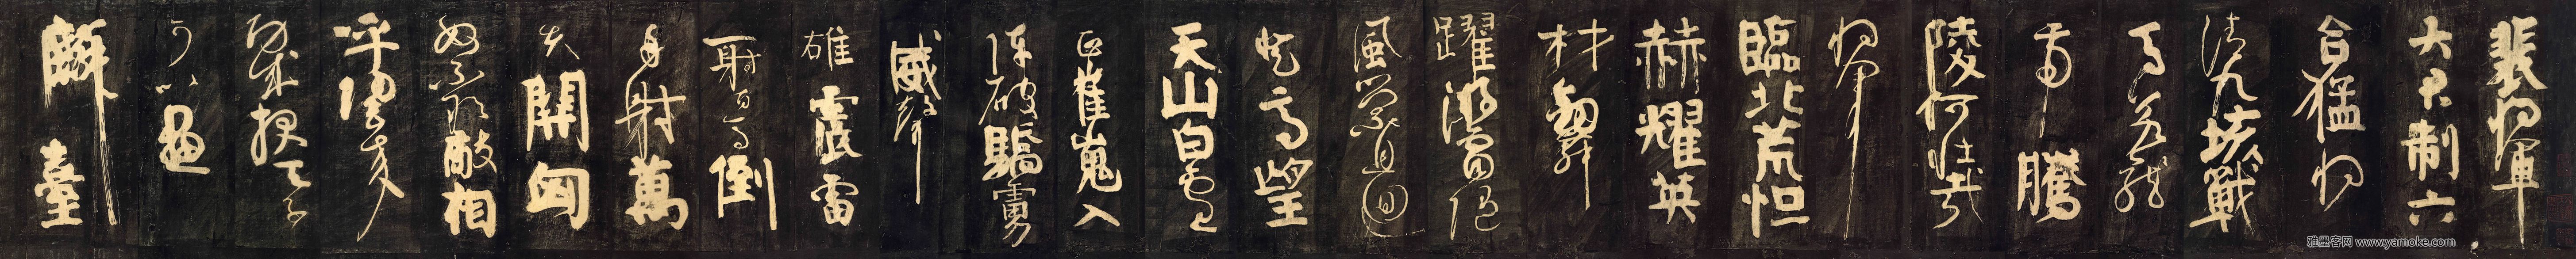 裴將軍
大君制六
合猛將
清九垓戰
馬若龍
虎騰
陵何壯哉
將軍
臨北荒烜
赫耀英
材劍舞
躍游電隨
風縈且迴
登高望
天山白雲
正崔嵬入
陣破驕虜
威聲
雄震雷
一射百馬倒
再射萬
夫開匈
奴不敢敵相
呼歸去來
功成報天子
可以畫
麟臺
雅墨客网 www.yamoke.com